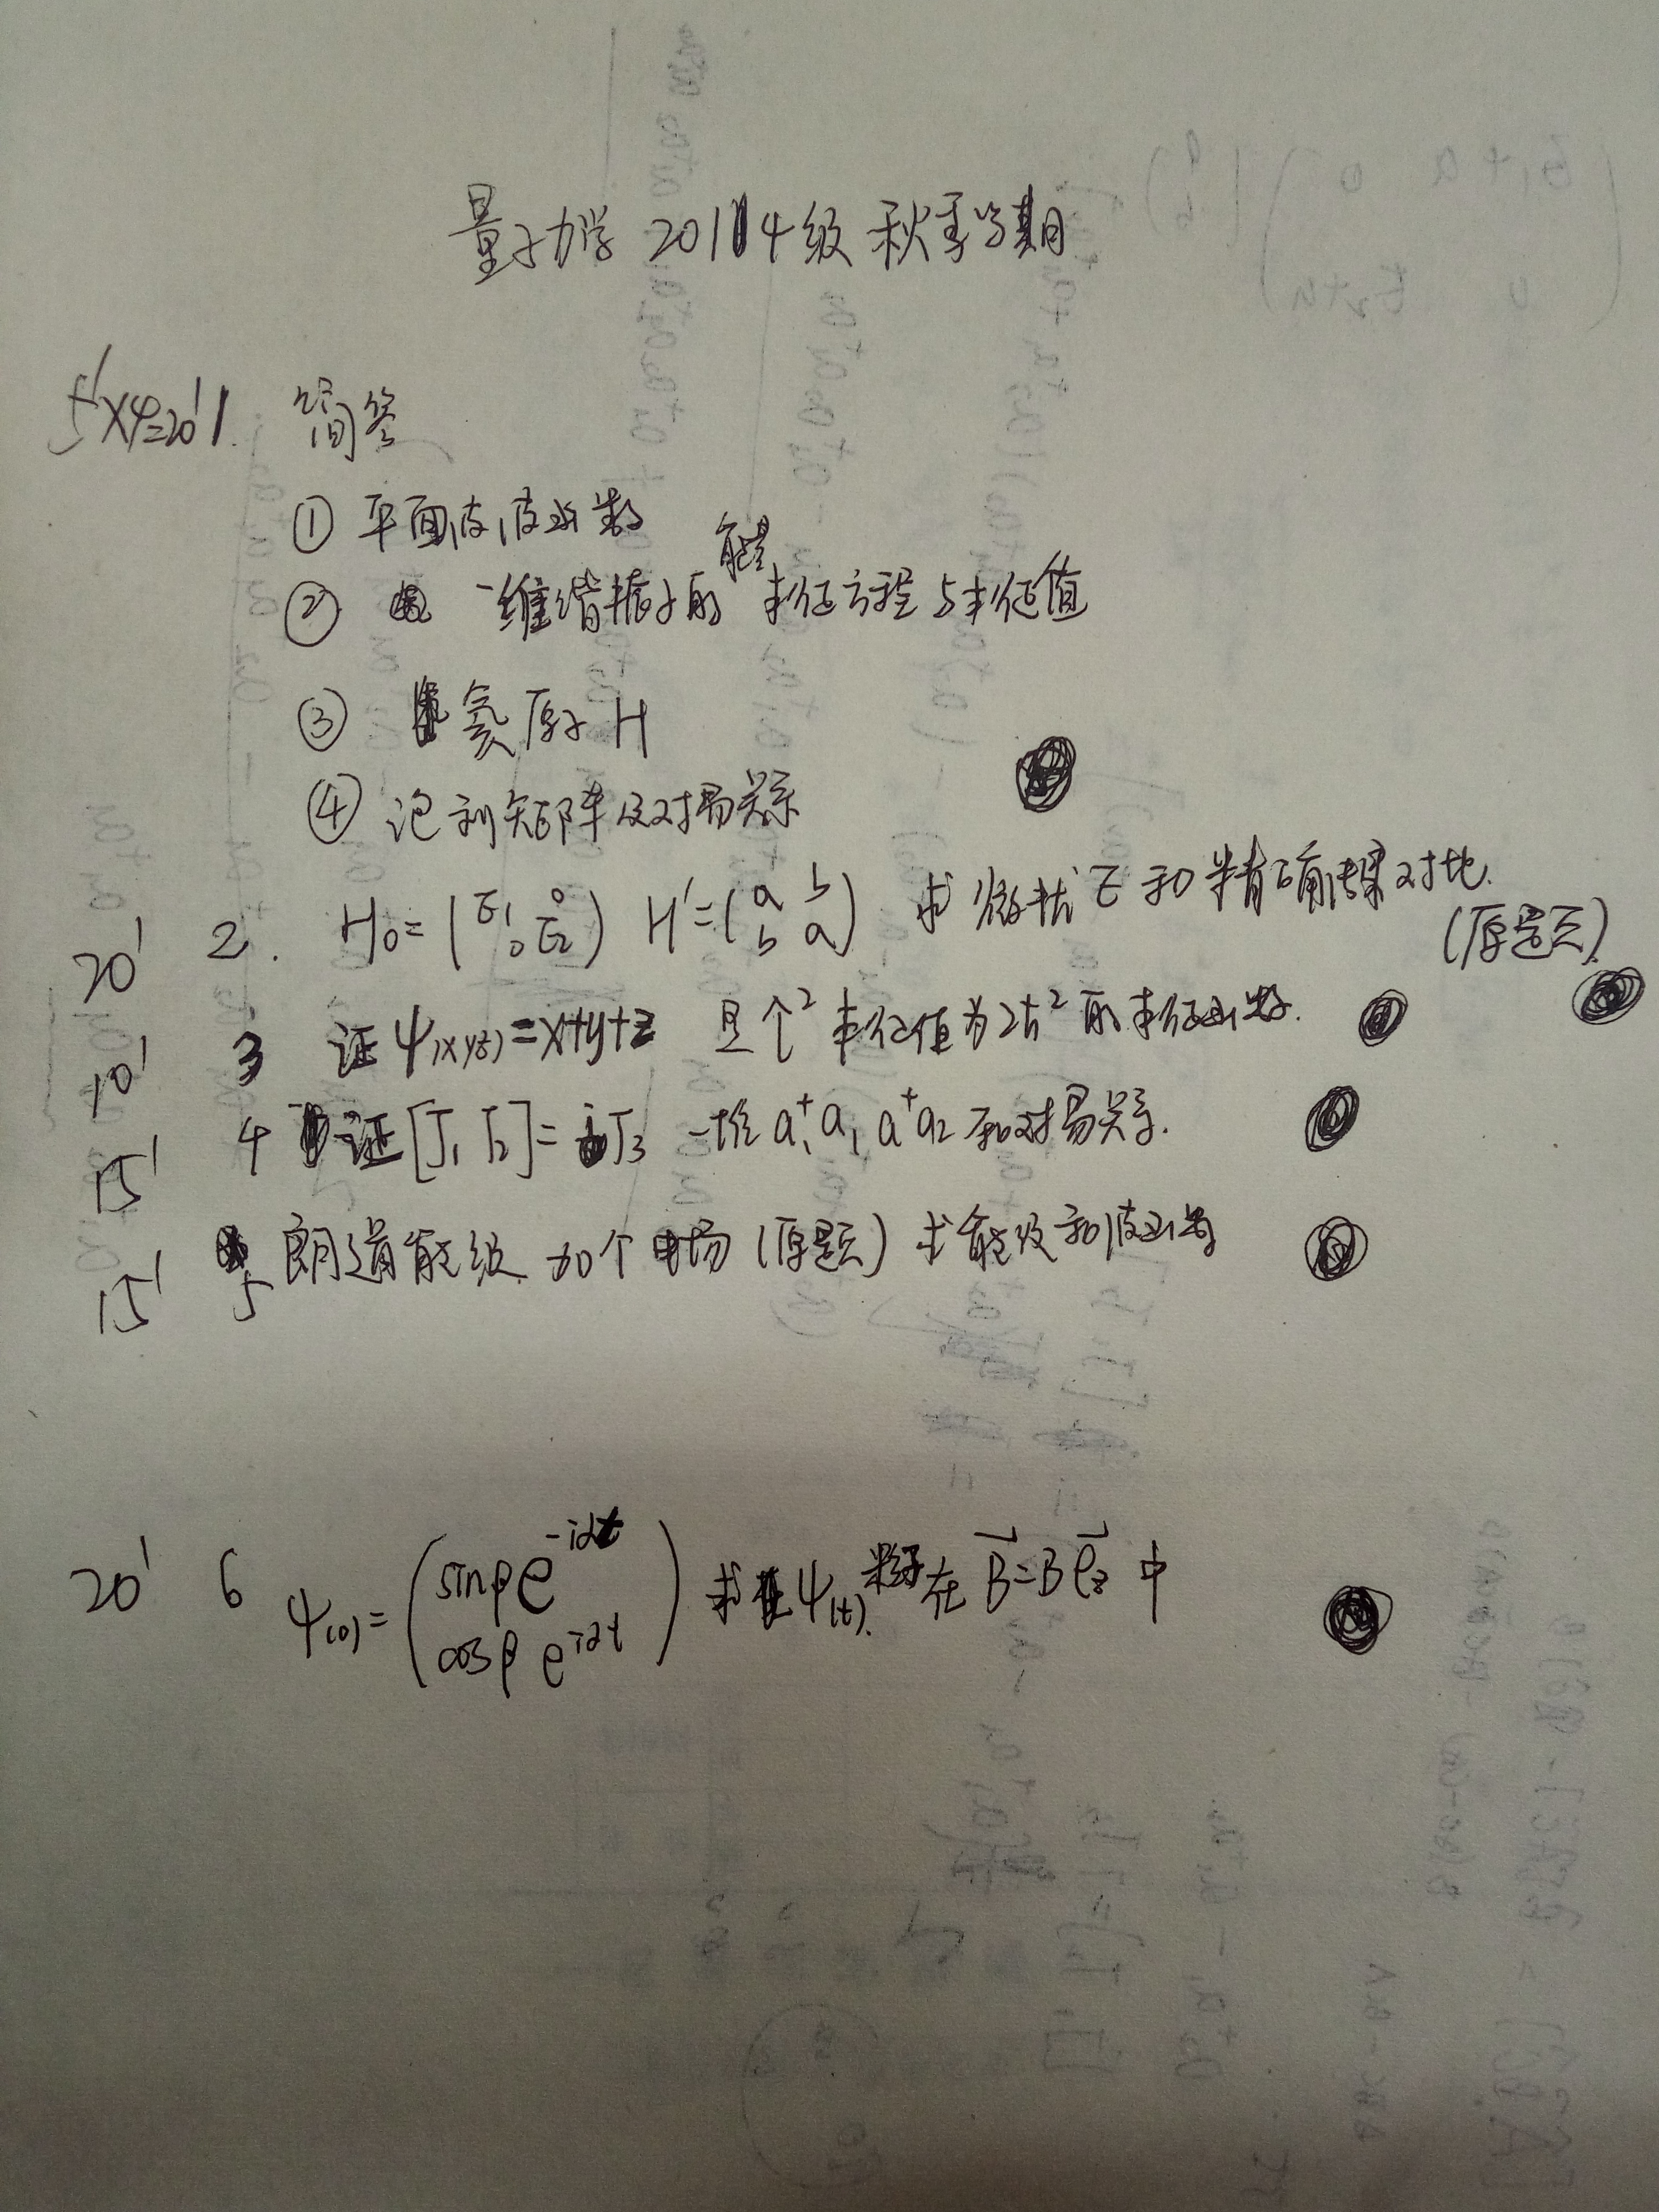 量子力学 2014级 秋季学期
5'×4=20' 1. 简答
① 平面波波函数
② 一维谐振子的能量本征方程与本征值
③ 氦原子 H
④ 泡利矩阵及对易关系
20' 2. H₀=(E₁ 0 0 E₂) H'=(a b b a) 求微扰E和精确结果对比.
(原题).
10' 3 证 ψ(xyz)=x+y+z 是个² 本征值为2ħ²的本征函数.
15' 4 证[J₁ J₂]=iJ₃ 一堆 a₁⁺a₁ a⁺a₂ 和对易关系.
15' 5 朗道能级 加个电场 (原题) 求能级和波函数
20' 6 ψ(0)=(sinβ e^-iαt cosβ e^iαt) 求ψ(t). 粒子在 B=Be₃ 中